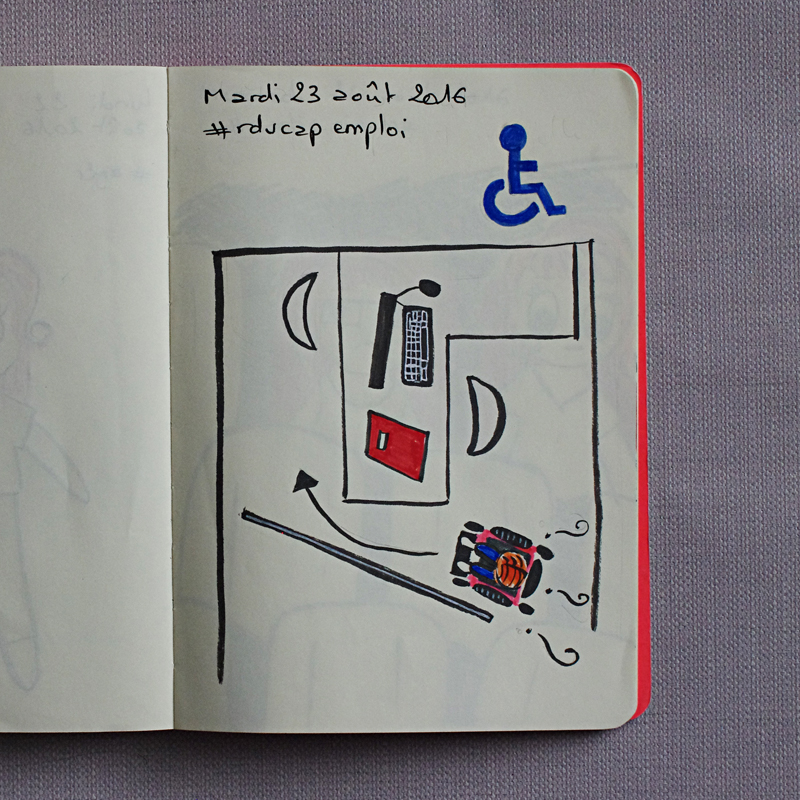 Mardi 23 août 2016
#rdvcap emploi
? ? ?